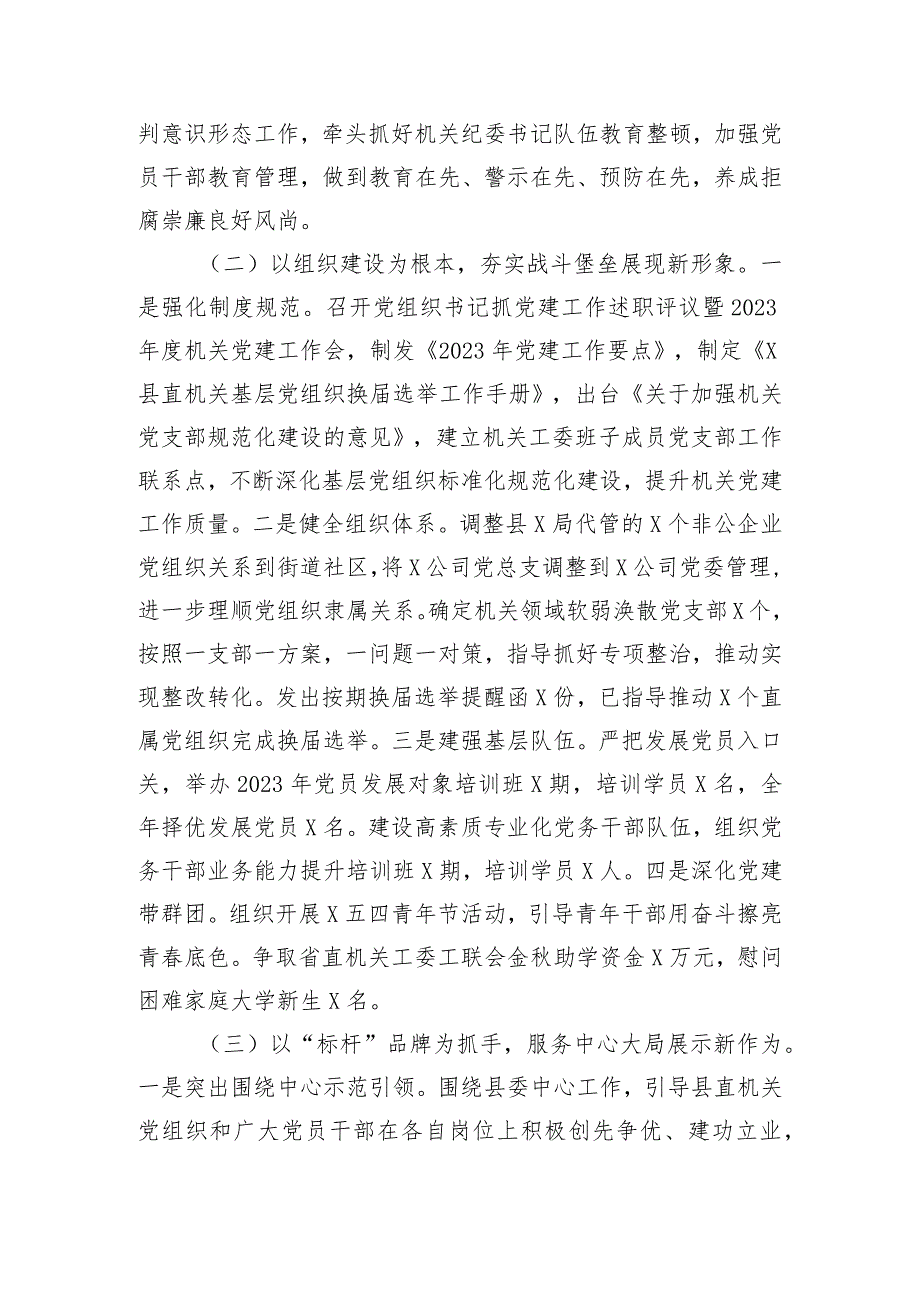 判意识形态工作，牵头抓好机关纪委书记队伍教育整顿，加强党
员干部教育管理，做到教育在先、警示在先、预防在先，养成拒
腐崇廉良好风尚。
（二）以组织建设为根本，夯实战斗堡垒展现新形象。一
是强化制度规范。召开党组织书记抓党建工作述职评议暨 2023
年度机关党建工作会，制发《2023 年党建工作要点》，制定《X
县直机关基层党组织换届选举工作手册》，出台《关于加强机关
党支部规范化建设的意见》，建立机关工委班子成员党支部工作
联系点，不断深化基层党组织标准化规范化建设，提升机关党建
工作质量。二是健全组织体系。调整县 X 局代管的 X 个非公企业
党组织关系到街道社区，将 X 公司党总支调整到 X 公司党委管理，
进一步理顺党组织隶属关系。确定机关领域软弱涣散党支部 X 个，
按照一支部一方案，一问题一对策，指导抓好专项整治，推动实
现整改转化。发出按期换届选举提醒函 X 份，已指导推动 X 个直
属党组织完成换届选举。三是建强基层队伍。严把发展党员入口
关，举办 2023 年党员发展对象培训班 X 期，培训学员 X 名，全
年择优发展党员 X 名。建设高素质专业化党务干部队伍，组织党
务干部业务能力提升培训班 X 期，培训学员 X 人。四是深化党建
带群团。组织开展 X 五四青年节活动，引导青年干部用奋斗擦亮
青春底色。争取省直机关工委工联会金秋助学资金 X 万元，慰问
困难家庭大学新生 X 名。
（三）以“标杆”品牌为抓手，服务中心大局展示新作为。
一是突出围绕中心示范引领。围绕县委中心工作，引导县直机关
党组织和广大党员干部在各自岗位上积极创先争优、建功立业，